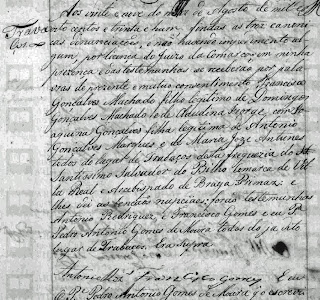 Aos vinte e nove do mes de Agosto de mil e
Trava cento e trinta e hum, findas as trez canoni
cas denunciaçoens, e não havendo impedimento al
gum, por licença de fui da comarca em minha
prezença e das testemunhas se receberão por pala
vras de prezente e mutuo consentimento Francisco
Gonsalves Machado filho legitimo de Domingos
Gonçalves Machado e de Jorge, com Jo
aquina Gonçalves filha legitima de Antonio
Gonçalves Marques e de Maria Joze Antunes
todos do lugar de desta freguezia do
Santissimo Salvador do Comarca de Vil
la Real e Arcebispado de Braga Primaz e
lhes dei as bençãos nupciaes: forão testemunhas
Antonio Rodriguez, e Francisco Gomes e eu P.e
Pedro Antonio Gomes de Moura todos do ja dito
lugar de Era supra.
Antonio Roiz Francisco Gomes Eeu
O P.e Pedro Antonio Gomes de Moura q̃ o escrevi